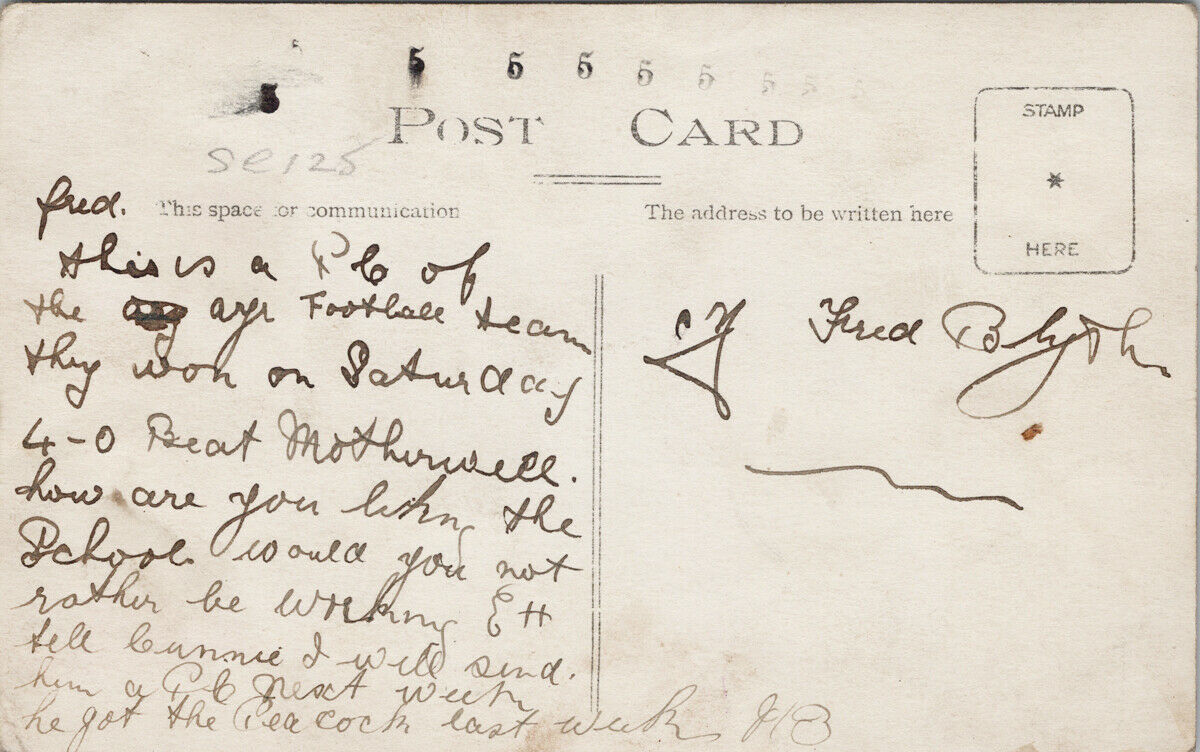 5 5 5 5 5 5 5
POST CARD
STAMP
*
HERE
SC125
This space for communication
The address to be written here
fred.
this is a PC of
the ayr Football team
they won on Saturday
4-0 Beat Motherwell.
how are you liking the
School would you not
rather be working EH
tell Cunnie I will send.
him a PC next week
he got the Peacock last week JB
Fred Blyth